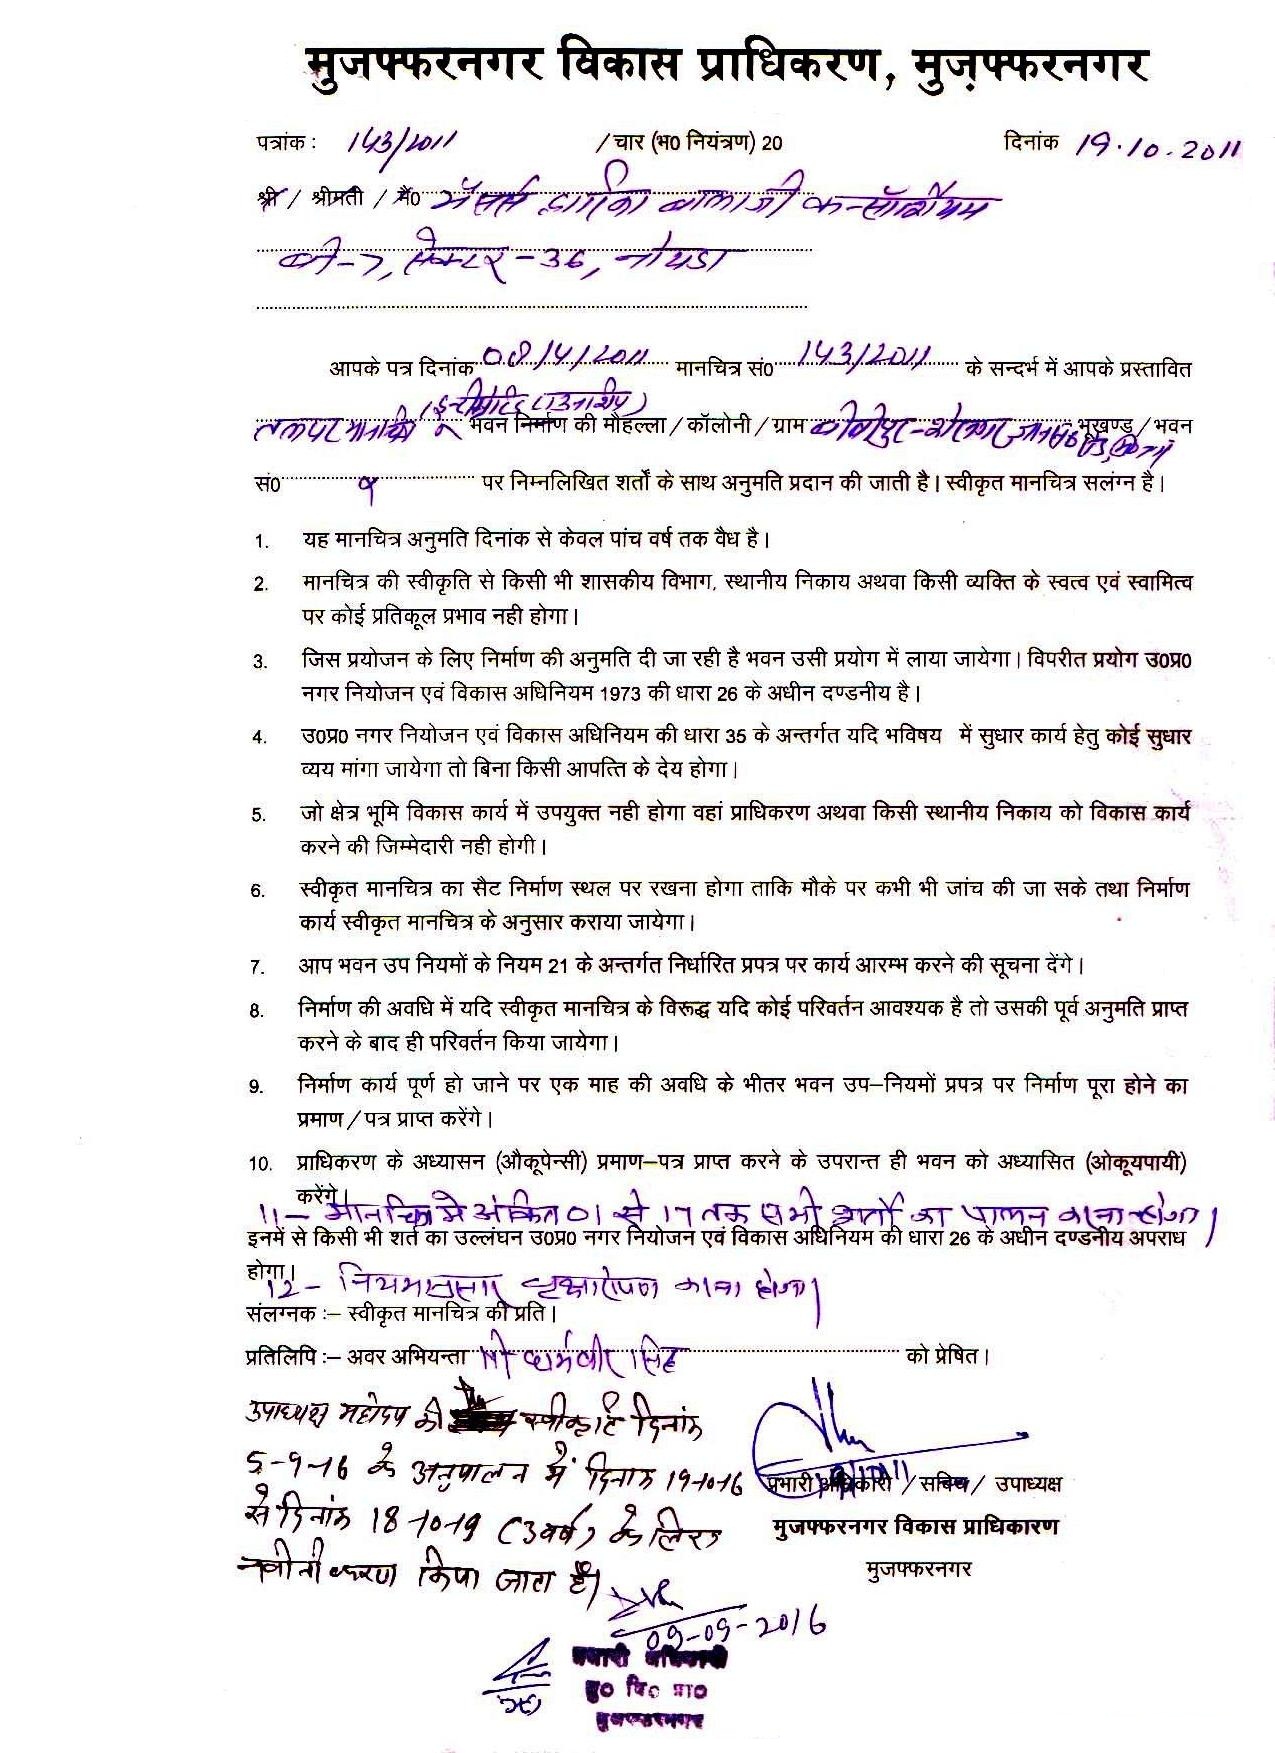 मुजफ्फरनगर विकास प्राधिकरण, मुज़फ्फरनगर
पत्रांक : 143/2011 / चार (भ0 नियंत्रण) 20 दिनांक 19.10.2011
श्री / श्रीमती / मै0 मैसर्स द्वारिका बालाजी कन्सॉर्शियम
बी-7, सेक्टर-36, नोयडा
आपके पत्र दिनांक 08/4/2011 मानचित्र सं0 143/2011 के सन्दर्भ में आपके प्रस्तावित
(इन्टीग्रेटिड टाउनशिप)
तलपट मानचित्र भवन निर्माण की मौहल्ला / कॉलोनी / ग्राम भूखण्ड / भवन
सं0 पर निम्नलिखित शर्तों के साथ अनुमति प्रदान की जाती है। स्वीकृत मानचित्र सलंग्न है।
1. यह मानचित्र अनुमति दिनांक से केवल पांच वर्ष तक वैध है।
2. मानचित्र की स्वीकृति से किसी भी शासकीय विभाग, स्थानीय निकाय अथवा किसी व्यक्ति के स्वत्व एवं स्वामित्व
पर कोई प्रतिकूल प्रभाव नही होगा।
3. जिस प्रयोजन के लिए निर्माण की अनुमति दी जा रही है भवन उसी प्रयोग में लाया जायेगा। विपरीत प्रयोग उ0प्र0
नगर नियोजन एवं विकास अधिनियम 1973 की धारा 26 के अधीन दण्डनीय है।
4. उ0प्र0 नगर नियोजन एवं विकास अधिनियम की धारा 35 के अन्तर्गत यदि भविषय में सुधार कार्य हेतु कोई सुधार
व्यय मांगा जायेगा तो बिना किसी आपत्ति के देय होगा।
5. जो क्षेत्र भूमि विकास कार्य में उपयुक्त नही होगा वहां प्राधिकरण अथवा किसी स्थानीय निकाय को विकास कार्य
करने की जिम्मेदारी नही होगी।
6. स्वीकृत मानचित्र का सैट निर्माण स्थल पर रखना होगा ताकि मौके पर कभी भी जांच की जा सके तथा निर्माण
कार्य स्वीकृत मानचित्र के अनुसार कराया जायेगा।
7. आप भवन उप नियमों के नियम 21 के अन्तर्गत निर्धारित प्रपत्र पर कार्य आरम्भ करने की सूचना देंगे।
8. निर्माण की अवधि में यदि स्वीकृत मानचित्र के विरूद्ध यदि कोई परिवर्तन आवश्यक है तो उसकी पूर्व अनुमति प्राप्त
करने के बाद ही परिवर्तन किया जायेगा।
9. निर्माण कार्य पूर्ण हो जाने पर एक माह की अवधि के भीतर भवन उप–नियमों प्रपत्र पर निर्माण पूरा होने का
प्रमाण / पत्र प्राप्त करेंगे।
10. प्राधिकरण के अध्यासन (औकूपेन्सी) प्रमाण–पत्र प्राप्त करने के उपरान्त ही भवन को अध्यासित (ओकूयपायी)
करेंगे।
11- मानचित्र मे अंकित 01 से 17 तक सभी शर्तो का पालन करना होगा।
इनमें से किसी भी शर्त का उल्लंघन उ0प्र0 नगर नियोजन एवं विकास अधिनियम की धारा 26 के अधीन दण्डनीय अपराध
होगा।
12- नियमानुसार वृक्षारोपण करना होगा।
संलग्नक :– स्वीकृत मानचित्र की प्रति।
प्रतिलिपि :– अवर अभियन्ता श्री धर्मवीर सिंह को प्रेषित।
उपाध्यक्ष महोदय की स्वीकृति दिनांक
5-9-16 के अनुपालन में दिनांक 19-10-16
से दिनांक 18-10-19 (3 वर्ष) के लिए
नवीनीकरण किया जाता है।
प्रभारी अधिकारी / सचिव / उपाध्यक्ष
मुजफ्फरनगर विकास प्राधिकारण
मुजफ्फरनगर
09-09-2016
प्रभारी अधिकारी
मु0 वि0 प्रा0
मुजफ्फरनगर